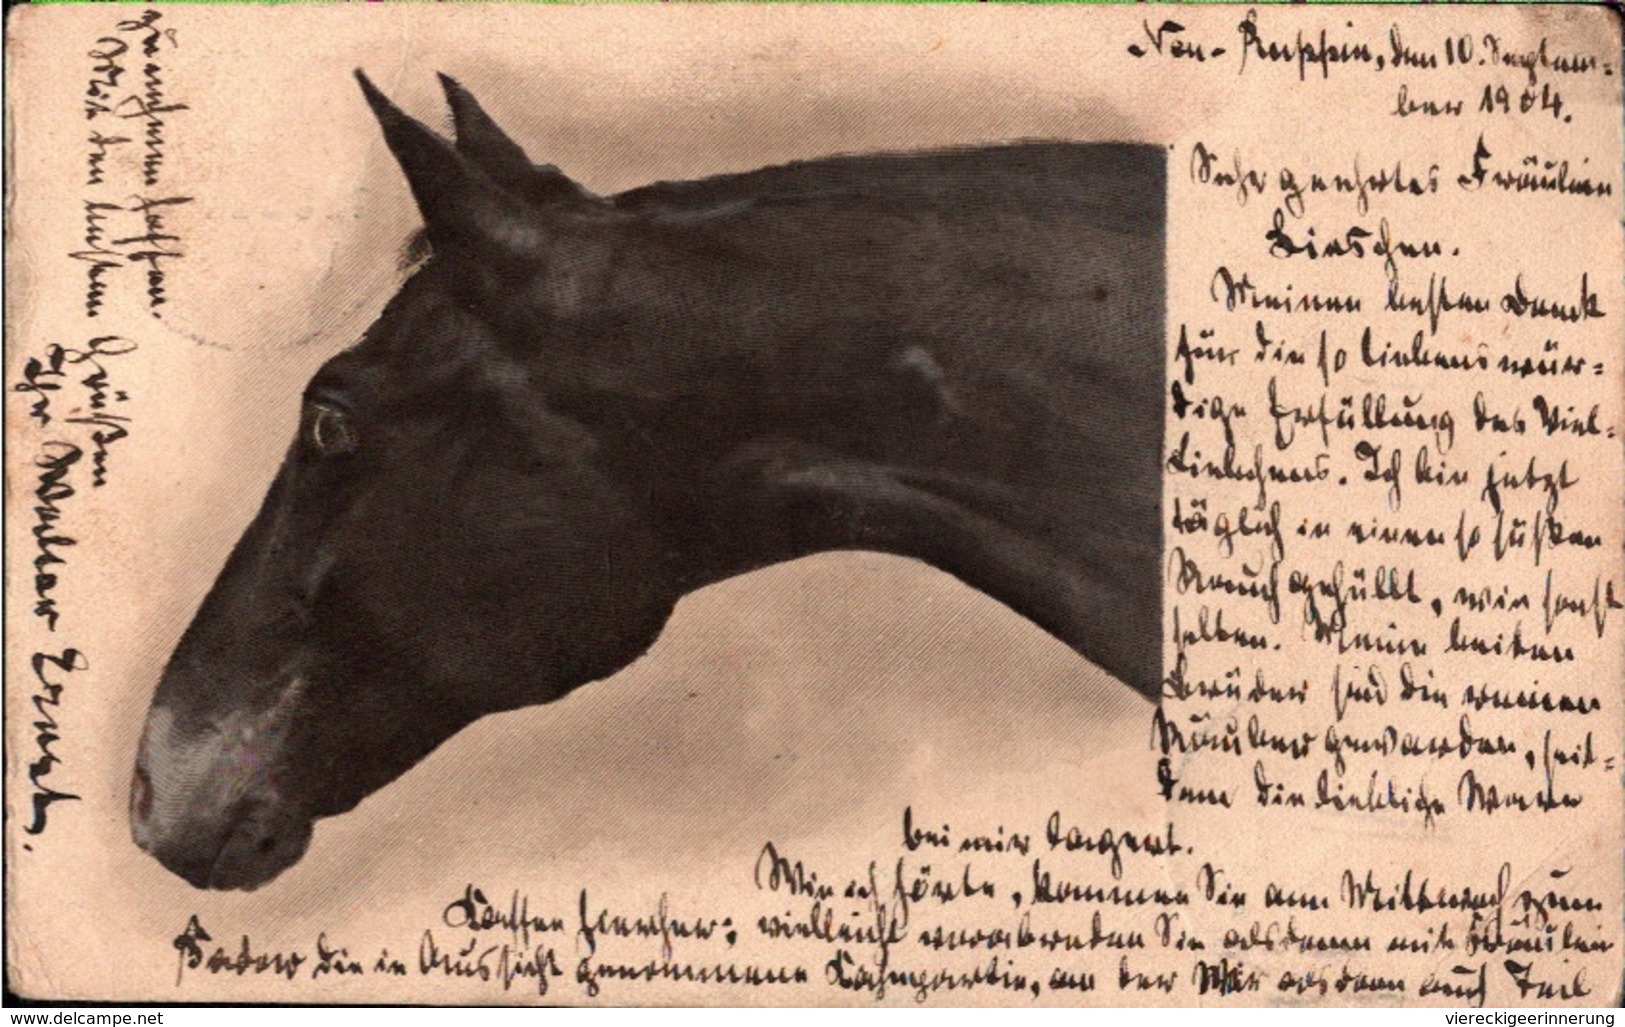 Neu-Ruppin, den 10. Septem=
ber 1904.
Sehr geehrtes Fräulein
Lieschen.
Meinen besten Dank
für die so liebenswür=
dige Erfüllung des Viel=
liebchens. Ich bin jetzt
täglich in einen so süßen
Rauch gehüllt, wie sonst
selten. Meine beiden
Brüder sind die reinen
Räuber geworden, seit=
dem die liebliche Ware
bei mir lagert.
Wie ich hörte, kommen Sie am Mittwoch zum
Kaffee hierher; vielleicht verabreden Sie alsdann mit Fräulein
die in Aussicht genommene Kahnpartie, an der Wir alsdann auch Teil
zu nehmen hoffen.
Mit den besten Grüßen
Ihr Walter Ernst.
www.delcampe.net
viereckigeerinnerung